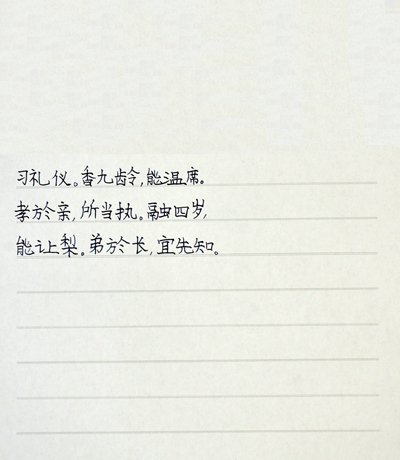 习礼仪。香九龄,能温席。
孝於亲,所当执。融四岁,
能让梨。弟於长,宜先知。